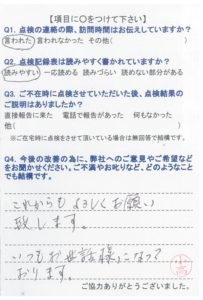 【項目に○をつけて下さい】
Q1. 点検の連絡の際、訪問時間はお伝えしていますか？
言われた 言われなかった その他( )
Q2. 点検記録表は読みやすく書かれていますか？
読みやすい 一応読める 読みづらい 読めない部分がある
Q3. ご不在時に点検させていただいた後、点検結果の
ご説明はありましたか？
直接報告に来た 電話で報告があった 何もなかった
他( )
※ご在宅時に点検をさせて頂いている場合は無回答で結構です。
Q4. 今後の改善の為に、弊社へのご意見やご希望など
をお聞かせください。ご不満やお叱りなど、どのようなこと
でも結構です。
これからもよろしくお願い
致します。
いつもお世話様になって
おります。
ご協力ありがとうございました。